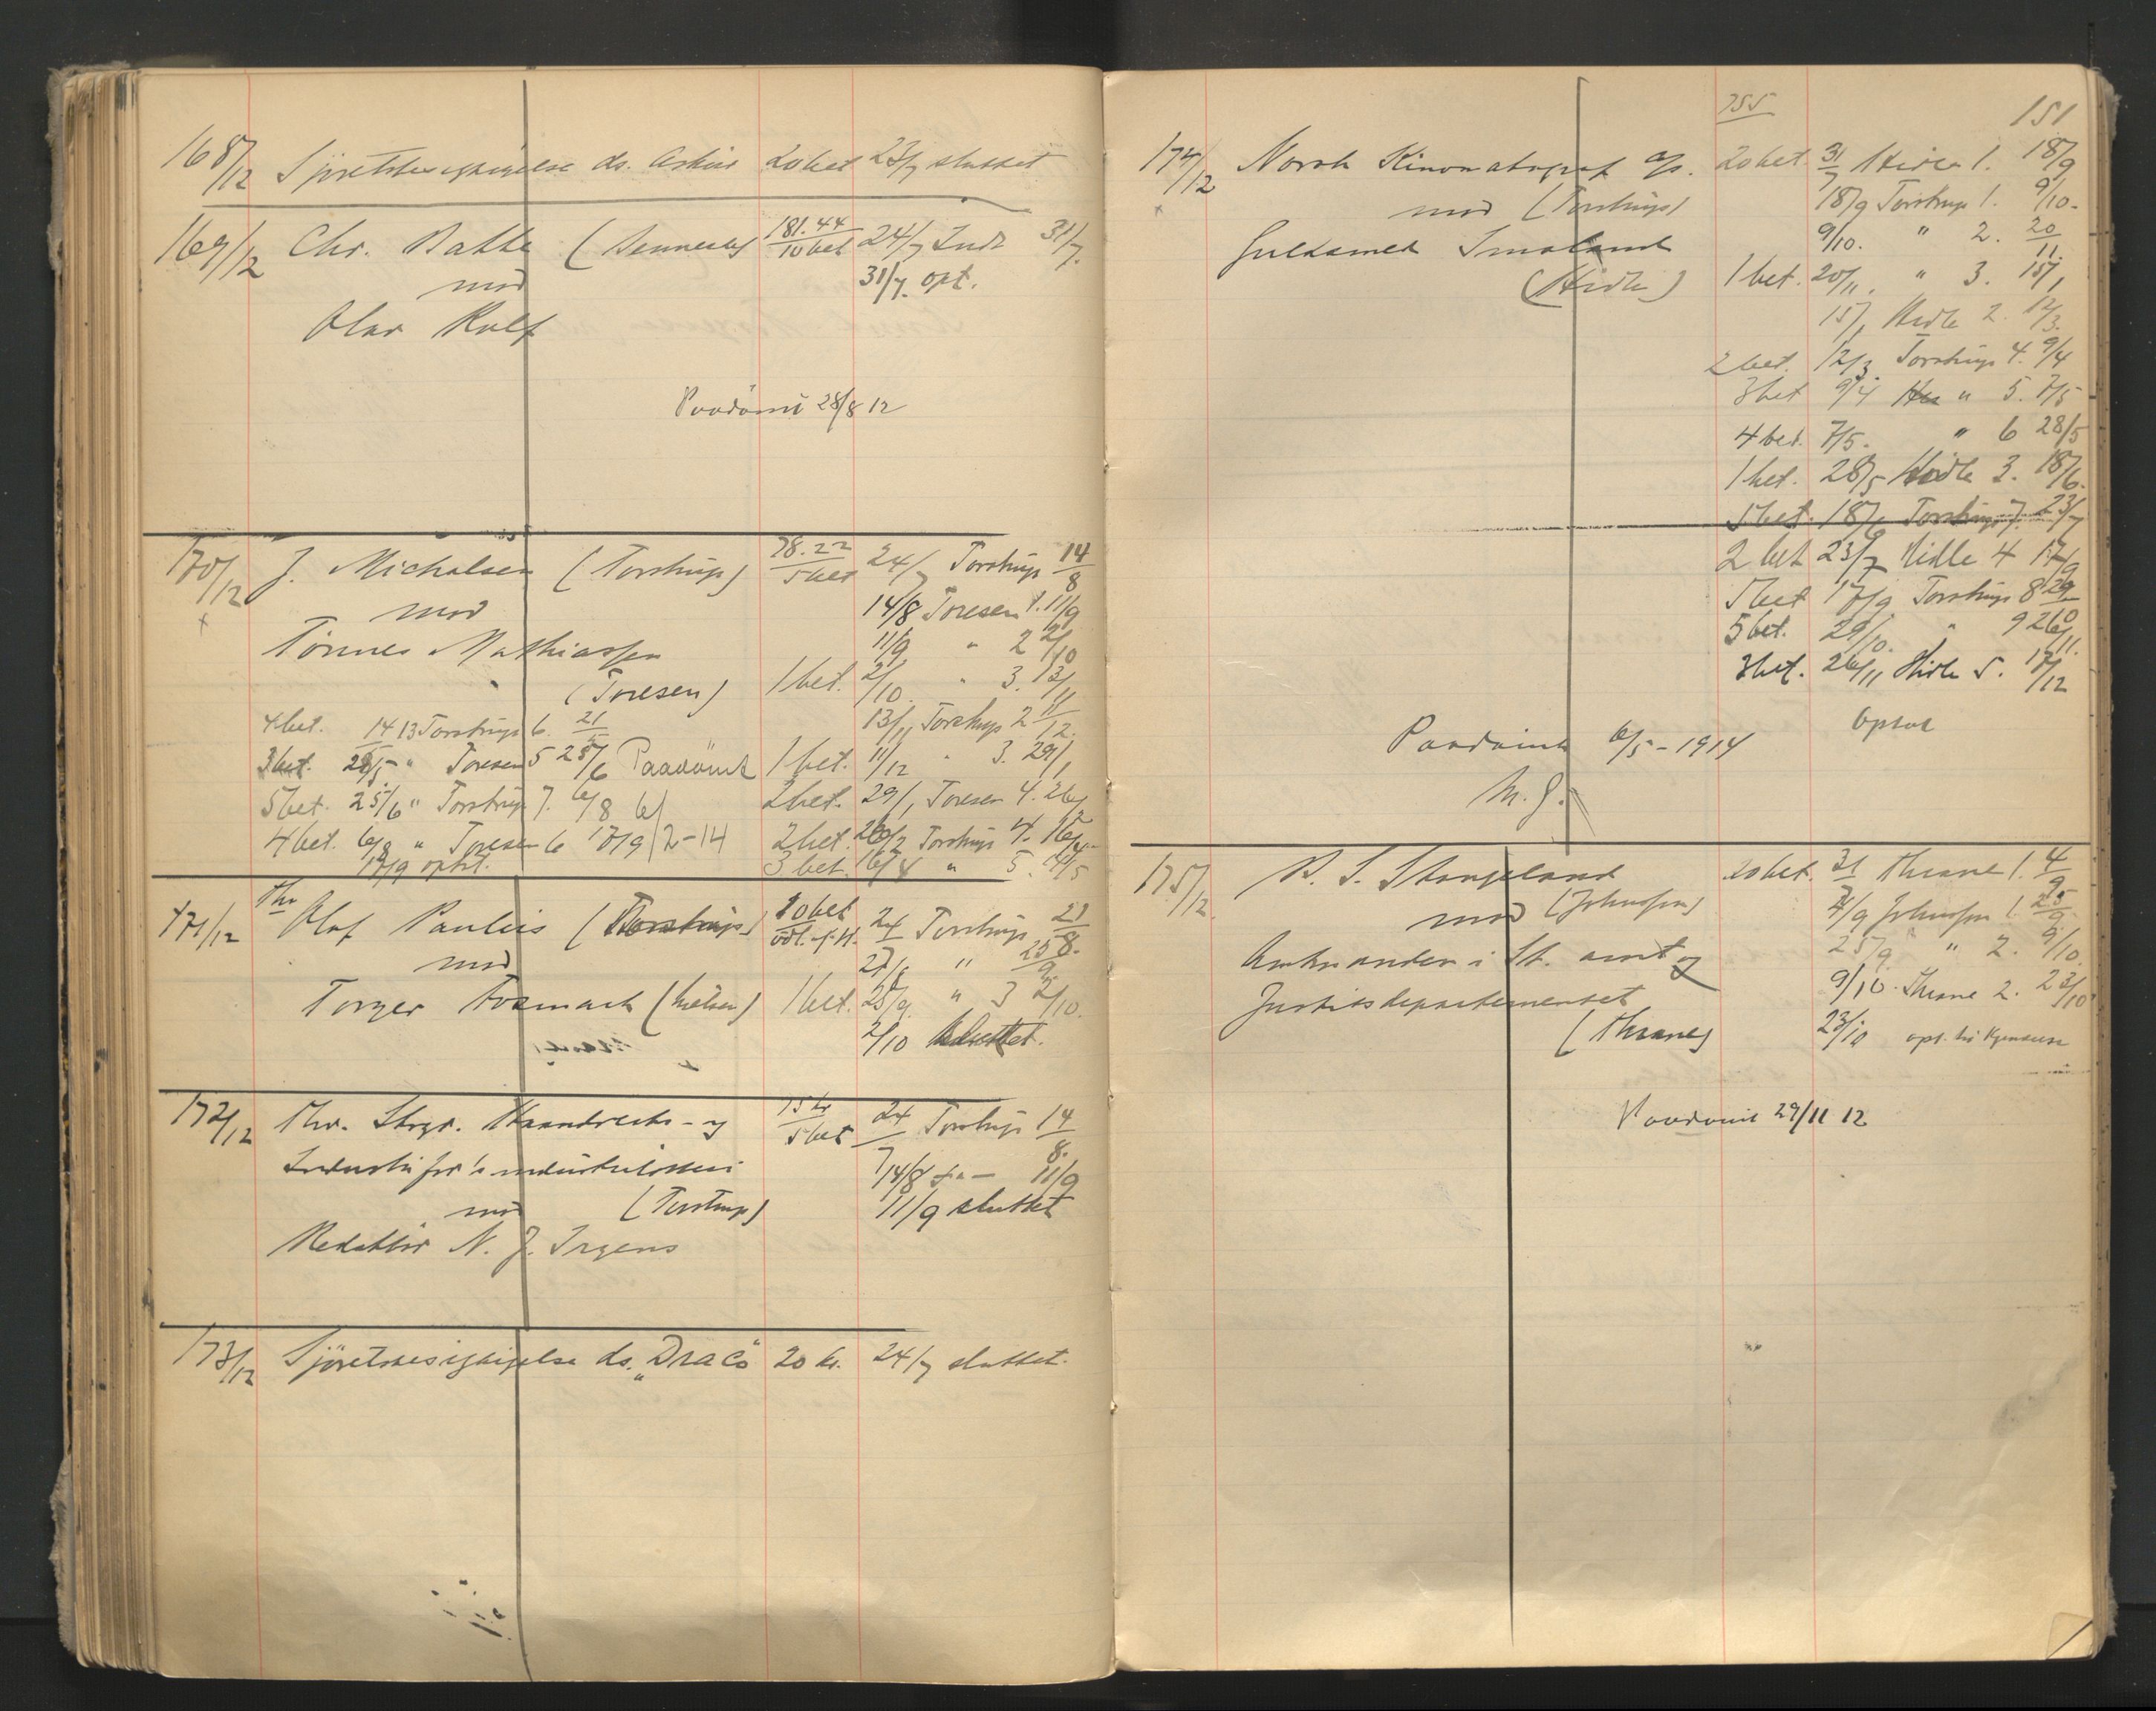 168/12 Sjöretsbesigtigelse ds. 20 bet 23/7 sluttet
169/12 Chr. Bakke ( 181.44 10 bet 24/7 Indk 31/7.
mod 31/7. opt.
Olav Rolf
Paadömt 28/8 12
170/12 J. Michalsen (Torstrup) 78.22 5 bet 24/7 Torstrup 14/8
mod 14/8 Toresen 1. 11/9
Tönnes Mathiassen 11/9 " 2 2/10
(Toresen) 1 bet. 2/10. " 3. 13/11
13/11 Torstrup 2 11/12.
4 bet. 14/5 13 Torstrup 6. 21/5
3 bet. 28/5 " Toresen 5 25/6 Paadömt 1 bet. 11/12 " 3. 29/1
5 bet. 25/6 " Torstrup 7. 6/8 6/ 2 bet. 29/1 Toresen 4. 26/2
4 bet. 6/8 " Toresen 6 17/9 2-14 2 bet. 26/2 Torstrup 4. 16/4
17/9 optat. 3 bet. 16/4 " 5. 14/5
171/12 Thv. Olaf Paulsis (Torstrup) 20 bet 24/7 Torstrup 21/8.
mod 21/8 " 25/9.
Torger (Nielsen) 1 bet. 25/9. " 3 2/10.
2/10 sluttet.
172/12 Thv. Stvgr. Haandverks- og 15 kr 5 bet 24/7 Torstrup 14/8.
Industrifor's 14/8 - " - 11/9
mod (Torstrup) 11/9 sluttet
Redaktör N. J. Irgens
173/12 Sjöretsbesigtigelse ds. "Draco" 20 kr. 24/7 sluttet.
755 151
174/12 Norsk Kinomatograf a/s. 20 bet. 31/7 Hidle 1. 18/9
mod (Torstrup) 18/9 Torstrup 1. 9/10.
Guldsmed Smaland 9/10. " 2. 20/11.
(Hidle) 1 bet. 20/11. " 3. 15/1
15/1 Hidle 2. 12/3.
2 bet. 12/3 Torstrup 4. 9/4
3 bet 9/4 " 5. 7/5
4 bet. 7/5. " 6 28/5
1 bet. 28/5 Hidle 3. 18/6.
5 bet. 18/6 Torstrup 7. 23/7
2 bet 23/7 Hidle 4 17/9
5 bet 17/9 Torstrup 8 29/10
5 bet. 29/10. " 9 26/11.
3 bet. 26/11 Hidle 5. 17/12
Optat
Paadömt 6/5-1914
175/12 B. S. Stangeland 20 bet. 31/7 Thrane 1. 4/9
mod (Johnsen) 4/9 Johnsen 1. 25/9.
Amtmanden i St. amt og 25/9. " 2. 9/10.
Justitsdepartementet 9/10. Thrane 2. 23/10
(Thrane) 23/10 opt. til Kjendelse
Paadömt 29/11 12